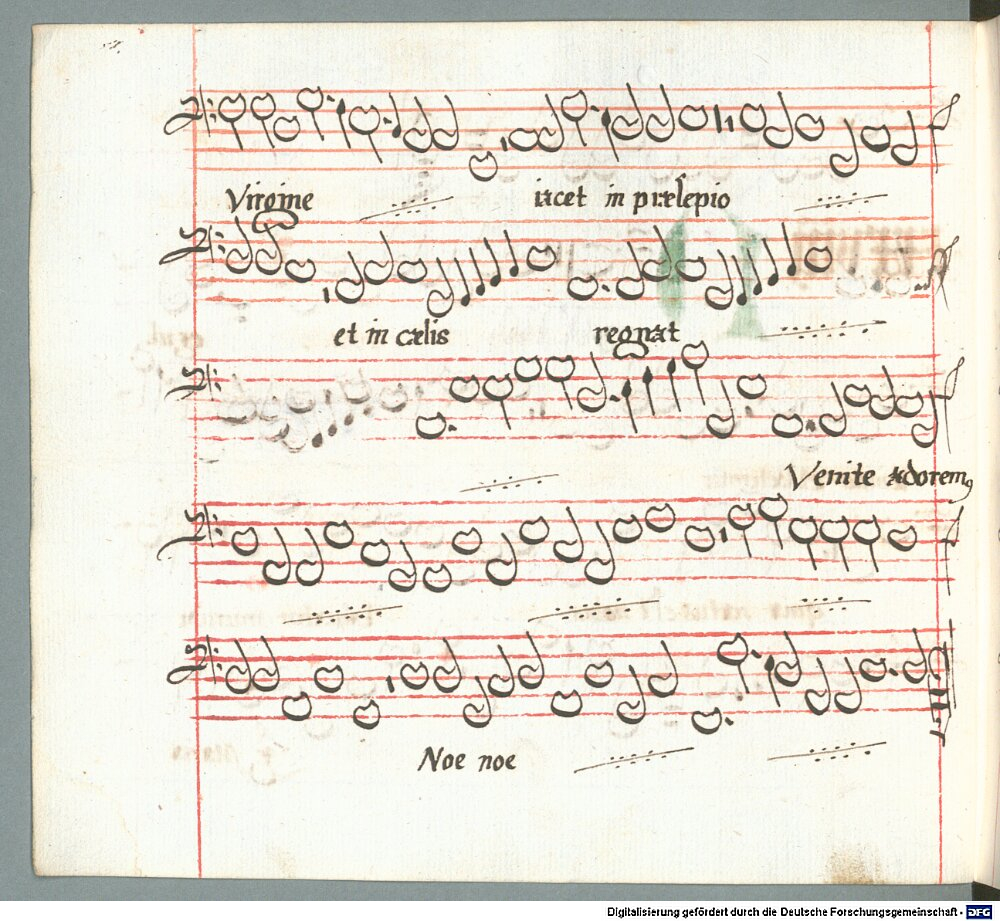 Virgine iacet in præsepio
et in cælis regnat
Venite adorem9
Noe noe
Digitalisierung gefördert durch die Deutsche Forschungsgemeinschaft - DFG